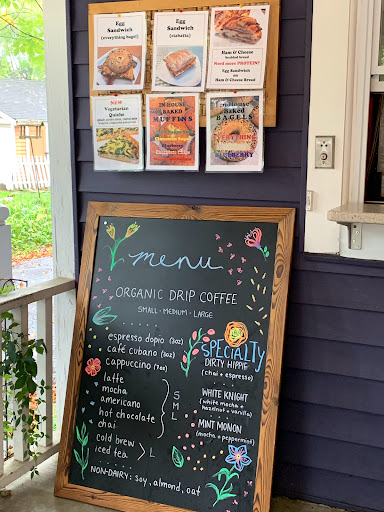 Egg
Sandwich
(everything bagel)
Egg
Sandwich
(ciabatta)
Ham & Cheese
Need more PROTEIN?
Egg Sandwich
Ham & Cheese Bread
NEW
Vegetarian
Quiche
IN HOUSE
BAKED
MUFFINS
Blueberry
In House
Baked
BAGELS
BLUEBERRY
menu
ORGANIC DRIP COFFEE
SMALL - MEDIUM - LARGE
espresso dopio (2oz)
café cubano (3oz)
cappuccino (7oz)
latte
mocha
americano
hot chocolate
chai
S
M
L
cold brew
iced tea > L
NON-DAIRY: soy, almond, oat
SPECIALTY
DIRTY HIPPIE
(chai + espresso)
WHITE KNIGHT
(white mocha +
hazelnut + vanilla)
MINT MONON
(mocha + peppermint)